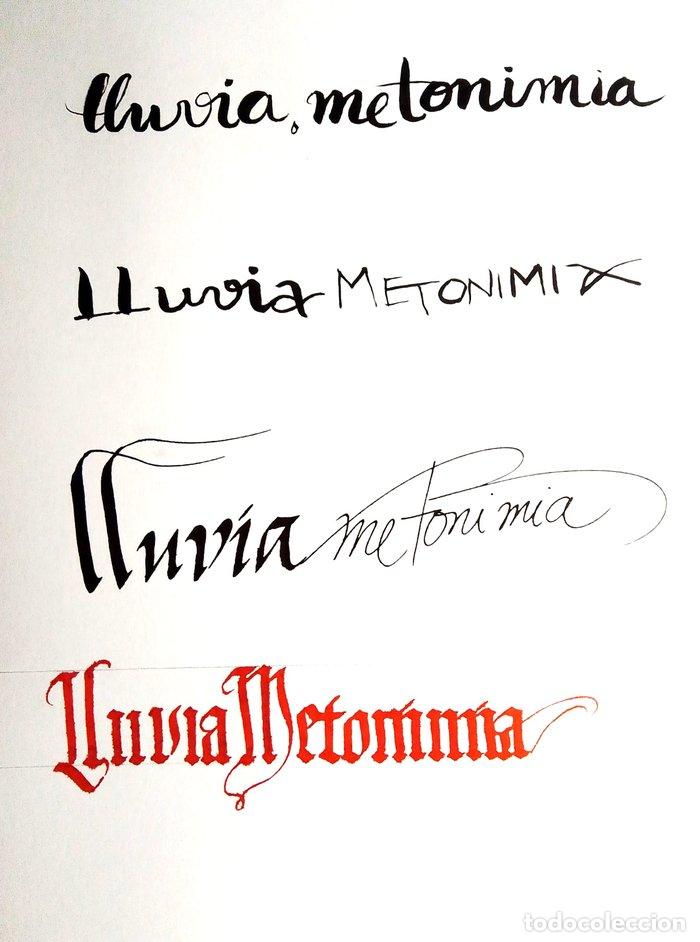 lluvia, metonimia
LLuvia METONIMIA
lluvia metonimia
Lluvia Metonimia
todocoleccion